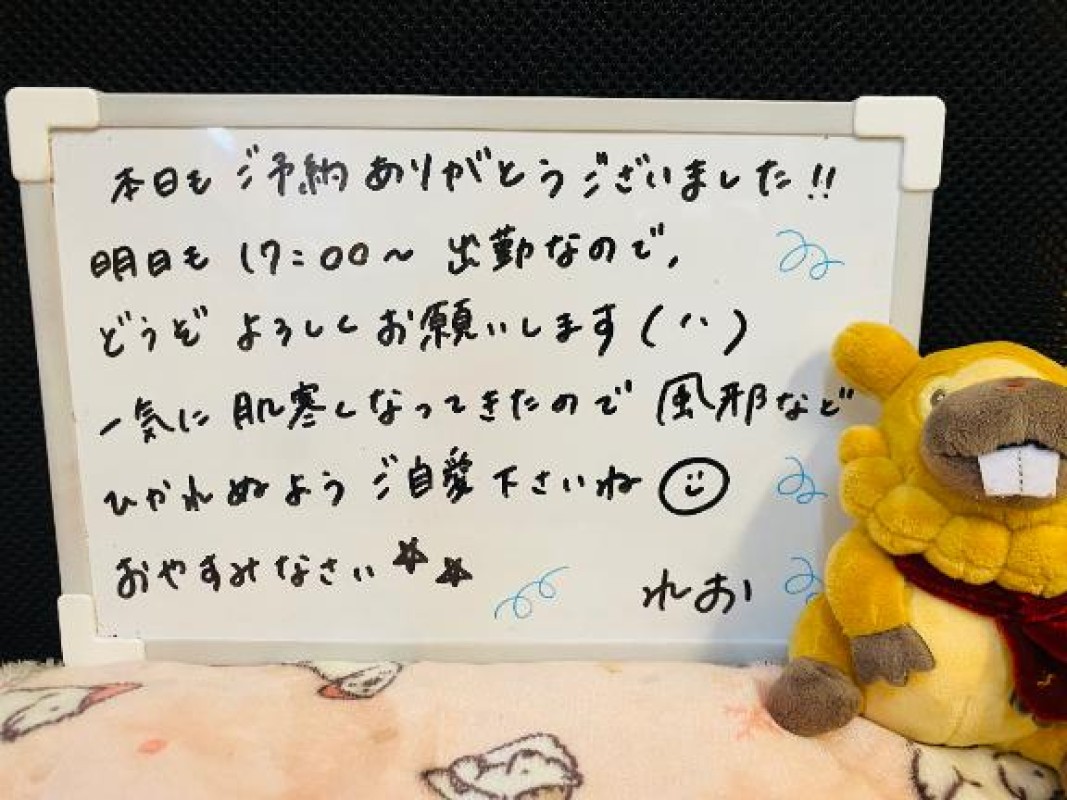 本日もご予約ありがとうございました!!
明日も17:00〜出勤なので、
どうぞよろしくお願いします(¨)
一気に肌寒くなってきたので風邪など
ひかれぬようご自愛下さいね☺
おやすみなさい☆☆
れお